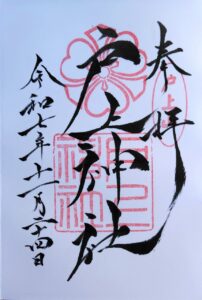 奉拝
戸上神社
令和七年十一月二十四日
戸上神社